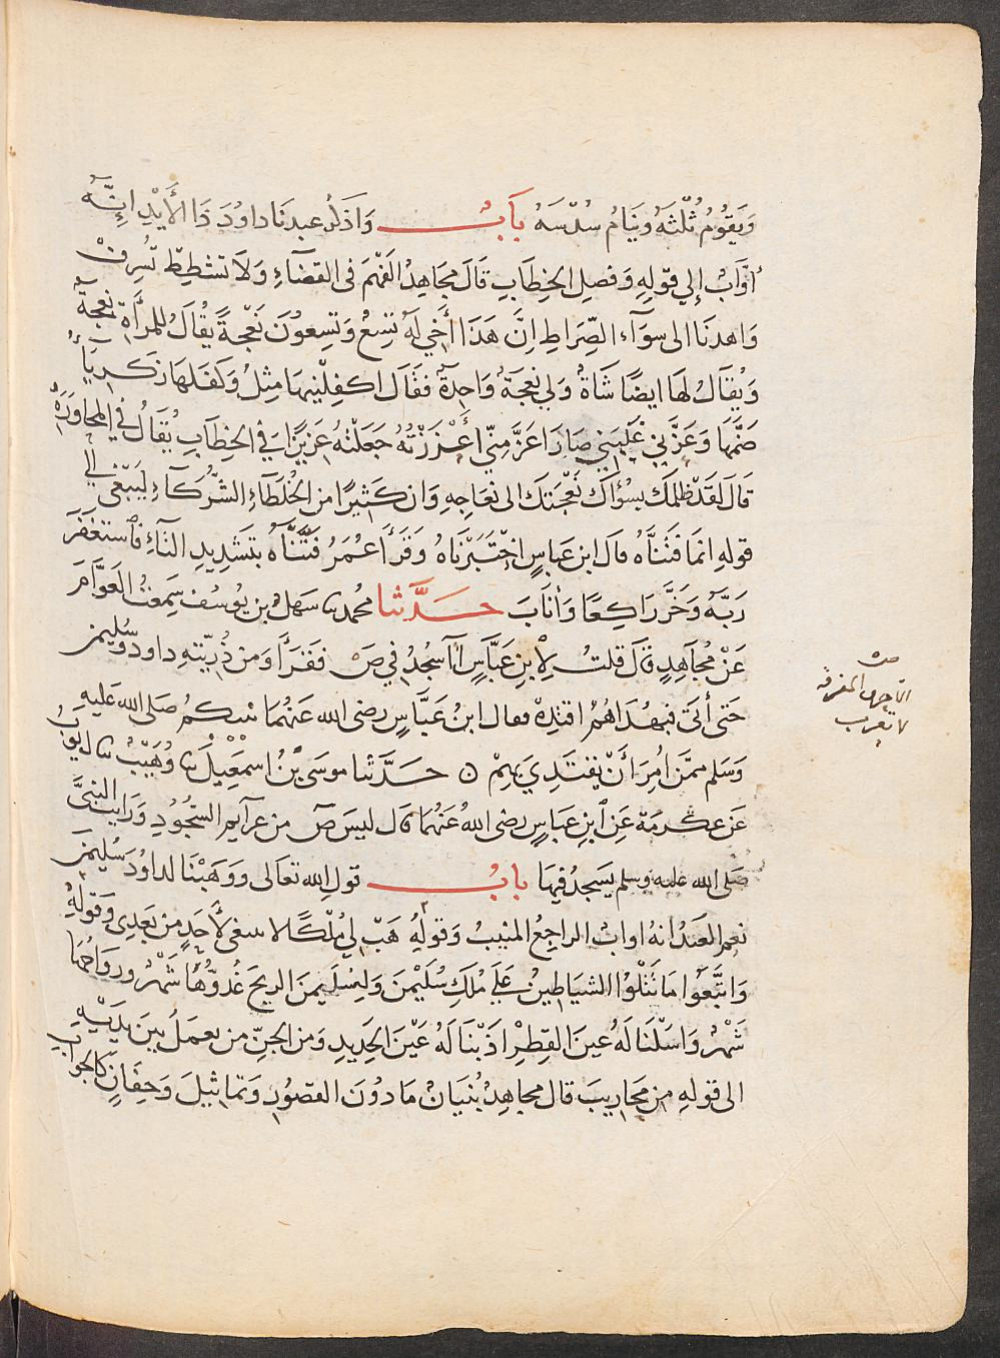 وَيَقُومُ ثُلُثَهُ وَيَنَامُ سُدُسَهُ بَابٌ وَاذْكُرْ عبدنَا داوُدَ ذَا الأَيْدِ إِنَّهُ
أَوَّابٌ إِلي قَوْلِهِ وَفصلِ الخِطَابِ قَالَ مجَاهِدٌ الفَهْم فى القضَآءِ وَلَا تشطِطْ تُسْرِفْ
وَاهدنَا الى سوَآء الصِّرَاطِ اِنَّ هَذَا أَخي لَهُ تِسْعٌ وَتِسعُونَ نَعْجَةً يُقَالُ لِلمَرْأَةِ نَعجةٌ
وَيُقَالُ لَهَا ايضًا شَاةٌ وَلي نعجَةٌ وَاحِدَةٌ فَقَالَ اكفِلْنِيهَا مِثلُ وَكفَلهَا زَكَريَّاءُ
ضَمَّهَا وَعَزَّني غلَبَني صَارَ اعَزَّ مِنّي أَعْزَزْتُهُ جَعَلْتُهُ عَزِيزًا في الخِطَابِ يُقَالُ في المحاوَرَةِ
قَالَ لقَدْ ظلمَكَ بِسُؤَالِ نَعْجَتكَ الى نعَاجِهِ وَان كَثِيرًا من الخُلَطَاءِ الشُّرَكَآءِ لِيَبْغى إلي
قولهِ انمَا فَتَنَّاهُ قال ابن عَباسٍ اخْتَبَرْنَاهُ وَقَرَأَ عُمَرُ فَتَّنَّاهُ بتَشدِيدِ التَّآءِ فاستَغفَرَ
رَبَّهُ وَخَرَّ رَاكِعًا وَأَنَابَ حَدَّثنا محُمد ثنا سَهلُ بن يُوسُف سَمِعتُ العَوَّامَ
عَنْ مُجَاهِدٍ قَالَ قلتُ لِابْنِ عَبَّاسٍ أَأَسجُدُ في صَ فقَرَأَ وَمن ذُرِّيَّتِهِ داودَ وَسُليمن
حَتى أَتَى فبهُدَاهُمُ اقتَدِهْ فقال ابنُ عَبَّاسٍ رضى الله عَنهُمَا نبيكمُ صَلى الله عَليهِ
وَسَلم ممَّن أُمِرَ أَنْ يَقتَدِيَ بِهِمْ ٥ حَدَّثنا موسَى بْنُ اسمَعِيْلَ ثنا وُهَيْبٌ ثنا ايوبُ
عَن عكْرمَة عَنِ ابنِ عبَاسٍ رضى الله عَنهُمَا قَال ليسَ صَ من عزآيمِ السُّجُودِ وَرَايت النبيَّ
صَلى الله عليه وسلم يَسجدُ فيهَا بابُ قول الله تعَالى وَوَهَبْنَا لداوُدَ سُليمنَ
نعم العَبدُ انهُ اوابٌ الراجِعُ المنيبُ وَقولِهُ هَبْ لي مُلْكًا لا ينبغى لأَحَدٍ من بَعدِى وَقولِهِ
وَاتبَّعُوا مَا تَتْلُوا الشيَاطِينُ عَلَي مُلكِ سُلَيْمنَ وَلِسُلَيمنَ الريحَ غُدُوُّهَا شَهْرٌ وَرواحُهَا
شَهْرٌ وَاسَلْنَا لَهُ عَينَ القِطْرِ اذَبْنَا لَهُ عَيْنَ الحَدِيدِ وَمن الجنِّ من يعمَلُ بينَ يدَيْهِ
الى قولهِ من مَحَاريبَ قال مجاهِدٌ بُنيَانٌ مَا دُونَ القصُورِ وَتماثيلَ وَجِفَانٍ كالجوَابِ